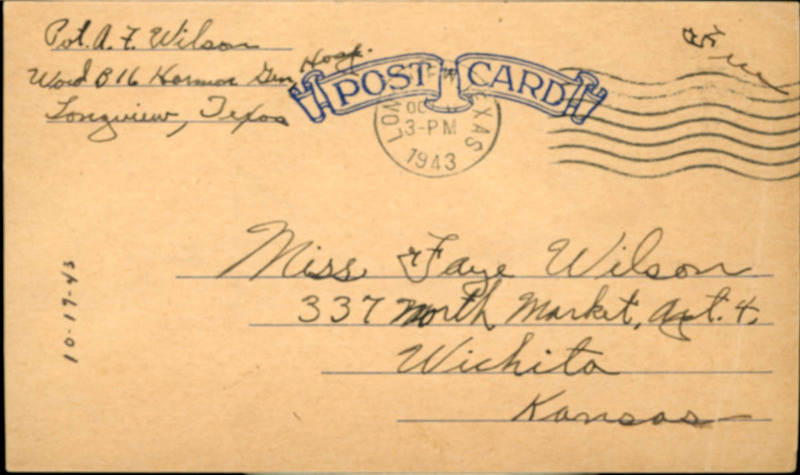 Pvt. A. F. Wilson
Ward B 16 Harmon Gen Hosp.
Longview, Texas
Free
POST CARD
LONGVIEW TEXAS
3-PM
1943
Miss Faye Wilson
337 North Market, Apt. 4,
Wichita
Kansas
10-17-43